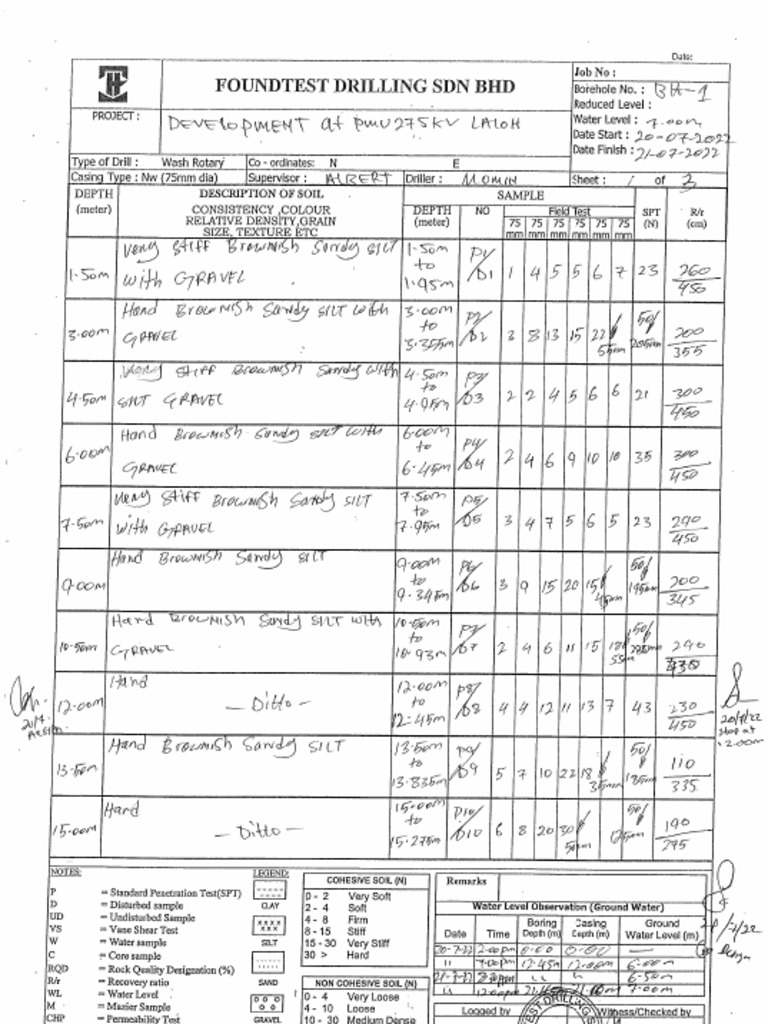 Date:
FOUNDTEST DRILLING SDN BHD
Job No :
Borehole No. : BH-1
Reduced Level :
Water Level : 7.00m
Date Start : 20-07-2022
Date Finish : 21-07-2022
PROJECT : DEVELOPMENT at PMU 275KV LALOH
Type of Drill : Wash Rotary Co - ordinates: N E
Casing Type : Nw (75mm dia) Supervisor : ALBERT Driller : MOMIN Sheet : 1 of 3
DEPTH (meter) DESCRIPTION OF SOIL CONSISTENCY ,COLOUR RELATIVE DENSITY,GRAIN SIZE, TEXTURE ETC SAMPLE
DEPTH (meter) NO Field Test SPT (N) R/r (cm)
75 mm 75 mm 75 mm 75 mm 75 mm 75 mm
1.50m Very Stiff Brownish Sandy SILT with GRAVEL 1.50m to 1.95m P1/D1 1 4 5 5 6 7 23 260/450
3.00m Hard Brownish Sandy SILT with GRAVEL 3.00m to 3.355m P2/D2 3 8 13 15 22/55mm 50/205mm 200/355
4.50m Very Stiff Brownish Sandy with SILT GRAVEL 4.50m to 4.95m P3/D3 2 2 4 5 6 6 21 300/450
6.00m Hard Brownish Sandy SILT with GRAVEL 6.00m to 6.45m P4/D4 2 4 6 9 10 10 35 300/450
7.50m Very Stiff Brownish Sandy SILT with GRAVEL 7.50m to 7.95m P5/D5 3 4 7 5 6 5 23 290/450
9.00m Hard Brownish Sandy SILT 9.00m to 9.345m P6/D6 3 9 15 20 15/45mm 50/195mm 200/345
10.50m Hard Brownish Sandy SILT with GRAVEL 10.50m to 10.93m P7/D7 2 4 6 11 15 18/55mm 50/280mm 240/430
12.00m Hard — Ditto — 12.00m to 12.45m P8/D8 4 4 12 11 13 7 43 230/450
13.50m Hard Brownish Sandy SILT 13.50m to 13.835m P9/D9 5 7 10 22 18/35mm 50/185mm 110/335
15.00m Hard — Ditto — 15.00m to 15.275m P10/D10 6 8 20 30/50mm 50/125mm 190/275
20/7/22 stop at 12.00m
NOTES:
P = Standard Penetration Test(SPT)
D = Disturbed sample
UD = Undisturbed Sample
VS = Vane Shear Test
W = Water sample
C = Core sample
RQD = Rock Quality Designation (%)
R/r = Recovery ratio
WL = Water Level
M = Mazier Sample
CHP = Permeability Test
LEGEND:
CLAY
SILT
SAND
GRAVEL
COHESIVE SOIL (N)
0 - 2 Very Soft
2 - 4 Soft
4 - 8 Firm
8 - 15 Stiff
15 - 30 Very Stiff
30 > Hard
NON COHESIVE SOIL (N)
0 - 4 Very Loose
4 - 10 Loose
10 - 30 Medium Dense
Remarks
Water Level Observation (Ground Water)
Date Time Boring Depth (m) Casing Depth (m) Ground Water Level (m)
20-7-22 2:00pm 0.00 0.00 —
" 12.45m 12.00m 6.00m
21-7-22 " " 6.50m
" 7.00m
Logged by Witness/Checked by